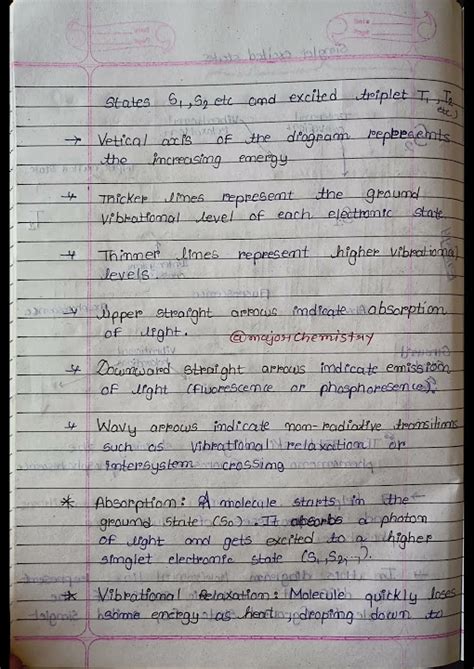 States S1, S2 etc and excited triplet T1, T2 etc.)
→ Vetical axis of the diagram represents
the increasing energy
→ Thicker lines represent the ground
vibrational level of each electronic state
→ Thinner lines represent higher vibrational
levels.
→ Upper straight arrows indicate absorption
of light.
@majorchemistry
→ Downward straight arrows indicate emission
of light (fluorescence or phosphoresence).
→ Wavy arrows indicate non-radiative transitions
such as vibrational relaxation or
intersystem crossing
* Absorption: A molecule starts in the
ground state (S0). It absorbs a photon
of light and gets excited to a higher
singlet electronic state (S1, S2, ..).
* Vibrational Relaxation: Molecule quickly loses
some energy as heat, droping down to